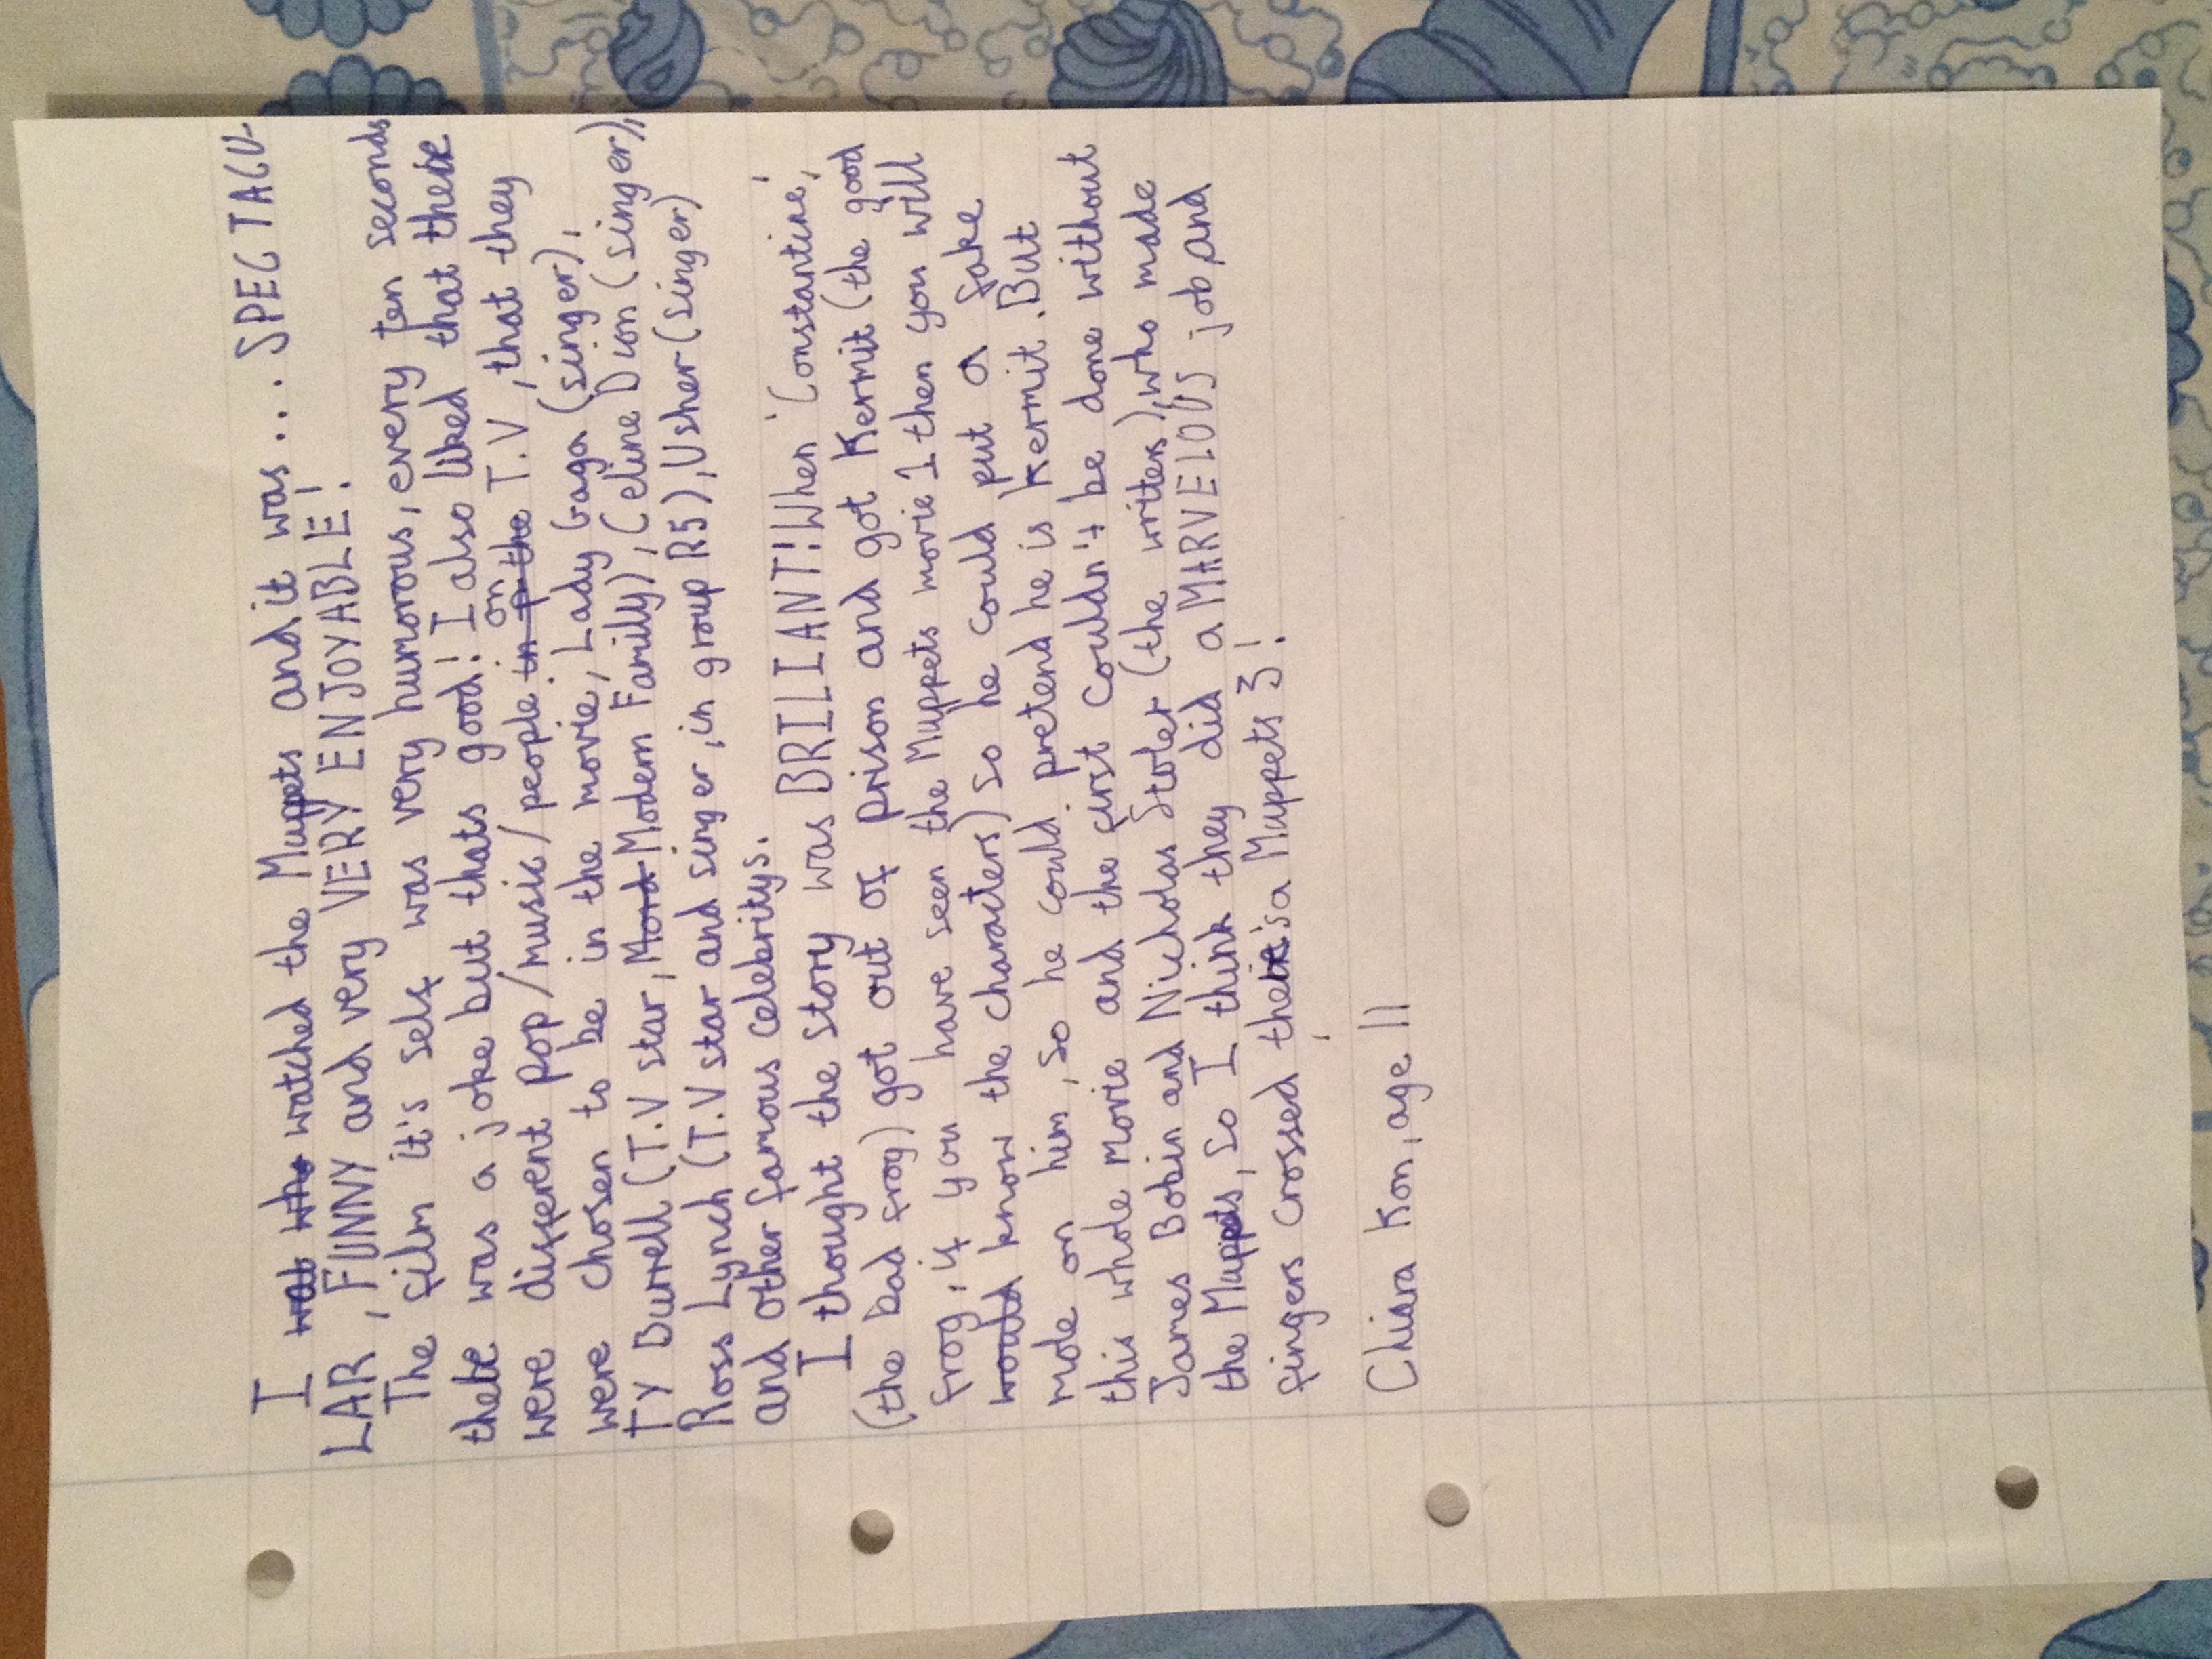 I watched the Muppets and it was... SPECTACU-
LAR, FUNNY and very VERY ENJOYABLE!
The film it's self was very humorous, every ten seconds
there was a joke but thats good! I also liked that there
were different pop/music/people on T.V, that they
were chosen to be in the movie, Lady Gaga (singer),
Ty Burrell (T.V star, Modern Family), Celine Dion (singer),
Ross Lynch (T.V star and singer, in group R5), Usher (singer)
and other famous celebritys.
I thought the story was BRILIANT! When 'Constantine,'
(the bad frog) got out of prison and got Kermit (the good
frog, if you have seen the Muppets movie 1 then you will
know the characters) so he could put a fake
mole on him, so he could pretend he is Kermit. But
this whole movie and the first couldn't be done without
James Bobin and Nicholas Stoler (the writers), who made
the Muppets, so I think they did a MARVELOUS job and
fingers crossed, there is a Muppets 3!
Chiara Kon, age 11